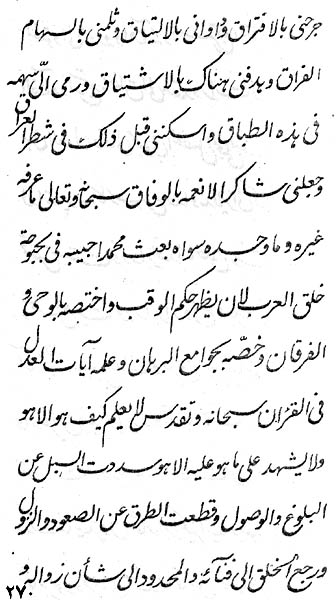 جرحنی بالافتراق و داوانی بالالتیاق و ثلمنی بالسهام
الفراق و یدفنی هناک بالاشتیاق و رمی الّی سهمه
فی هذه الطباق و اسکننی قبل ذلک فی شطر العراق
و جعلنی شاکرا لانعمه بالوفاق سبحانه و تعالی ما عرفه
غیره و ما وحده سواه بعث محمدا حبیبه فی بحبوحة
خلق العرب لان یظهر حکم الوقب و اختصه بالوحی و
الفرقان و خصّه بجوامع البرهان و علمه آیات العدل
فی القرآن سبحانه و تقدس لا یعلم کیف هو الا هو
و لا یشهد علی ما هو علیه الا هو سددت السبل عن
البلوغ و الوصول و قطعت الطرق عن الصعود و النزول
و رجع الخلق الی فنآئه و المحدود الی شأن زواله و
٢٧